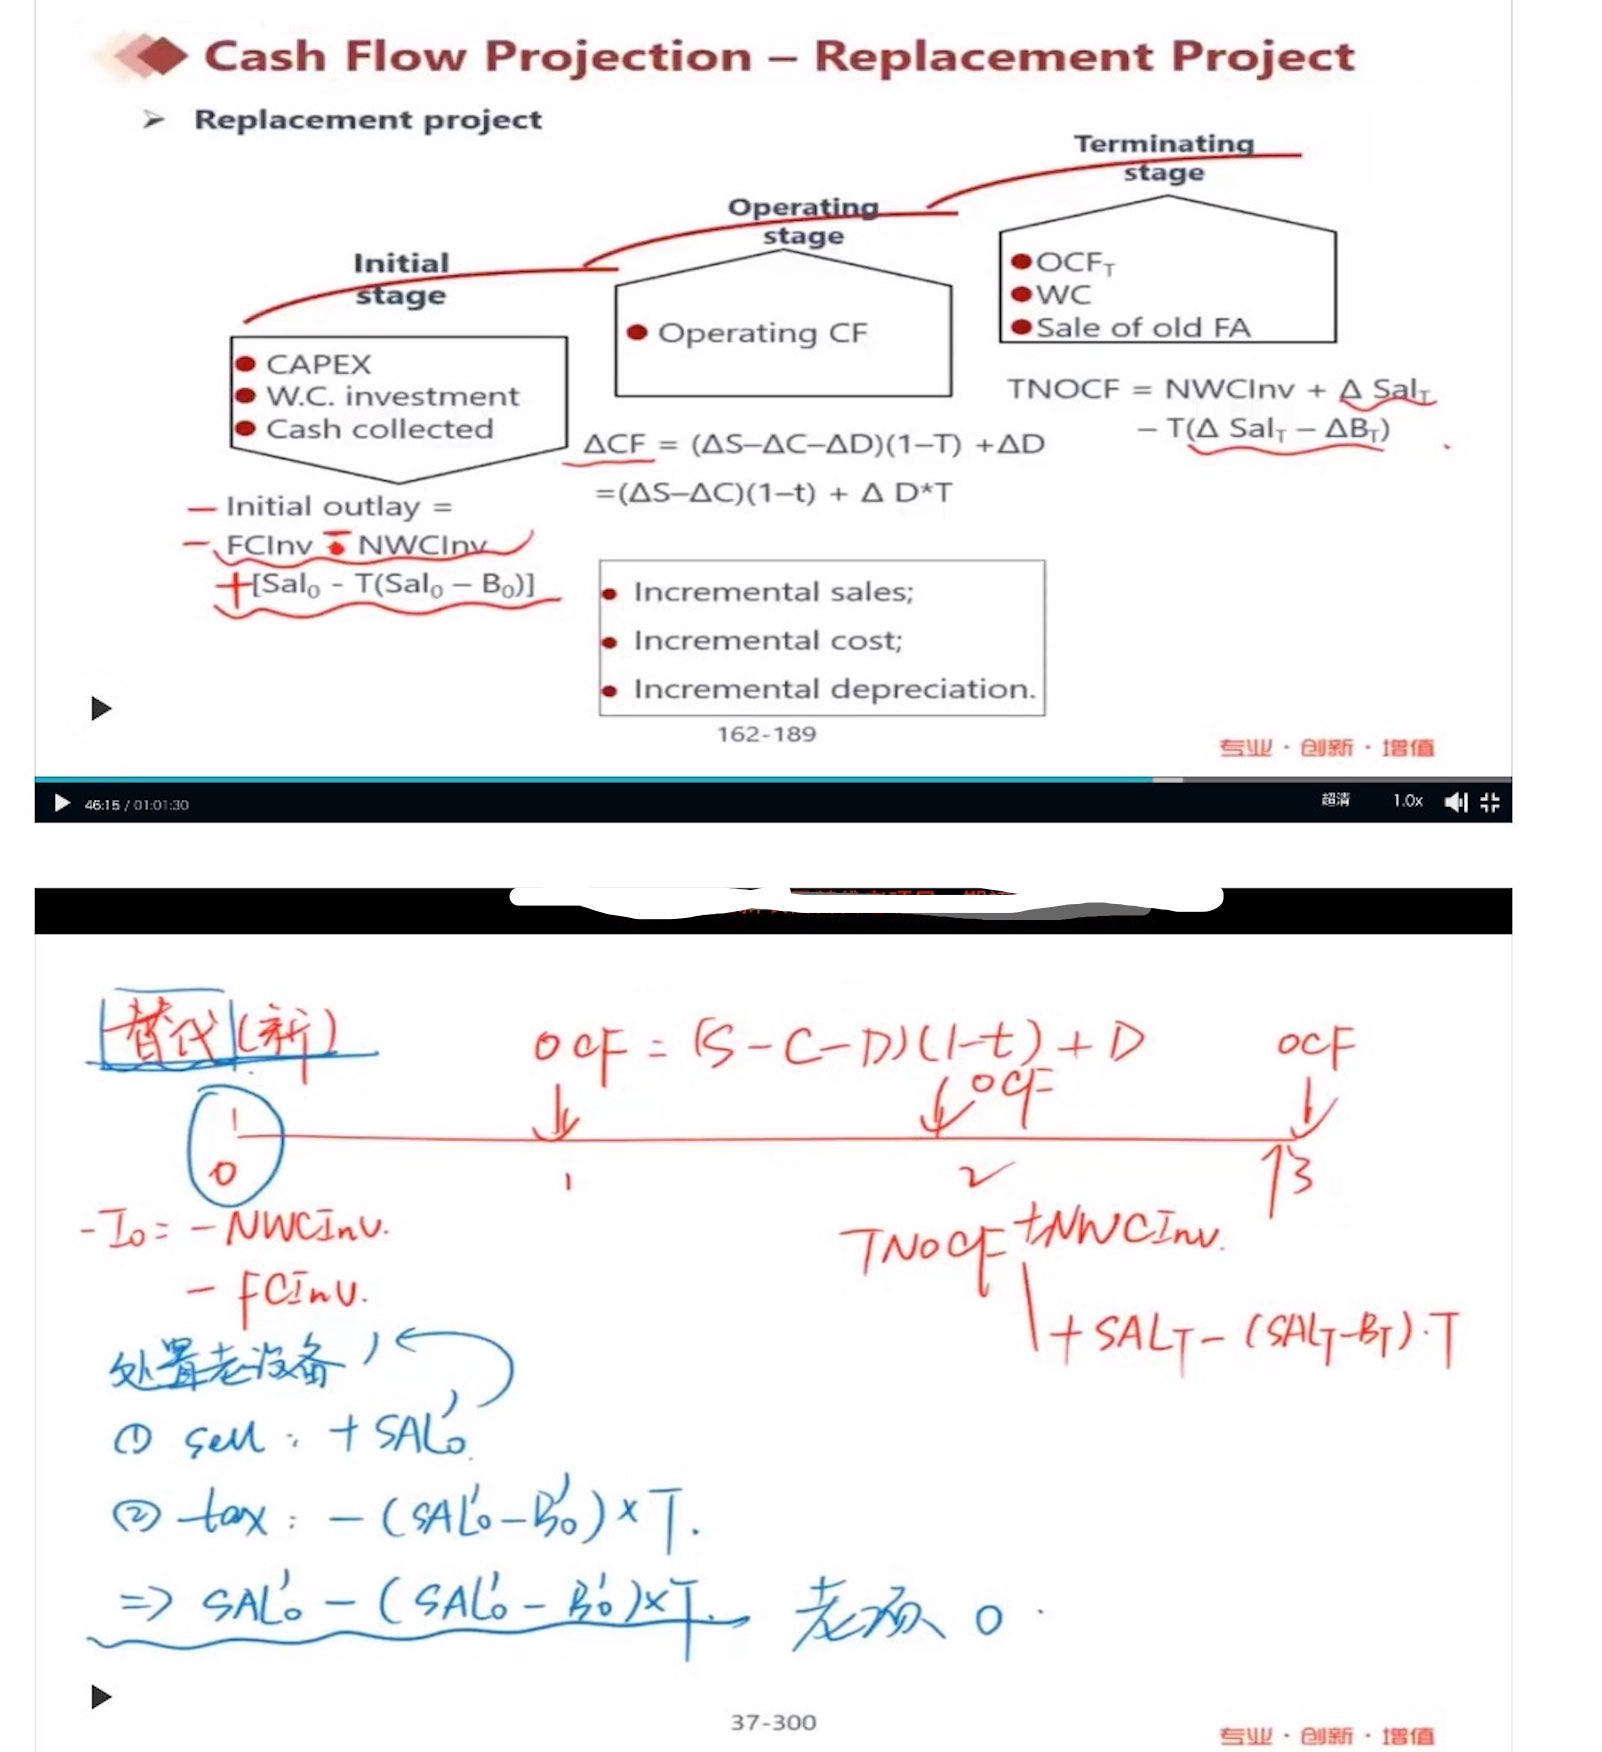 Cash Flow Projection – Replacement Project
➢ Replacement project
Initial
stage
Operating
stage
Terminating
stage
● CAPEX
● W.C. investment
● Cash collected
● Operating CF
● OCF_T
● WC
● Sale of old FA
– Initial outlay =
– FCInv – NWCInv
+[Sal₀ - T(Sal₀ – B₀)]
ΔCF = (ΔS–ΔC–ΔD)(1–T) +ΔD
=(ΔS–ΔC)(1–t) + Δ D*T
TNOCF = NWCInv + Δ Sal_T
– T(Δ Sal_T – ΔB_T)
• Incremental sales;
• Incremental cost;
• Incremental depreciation.
162-189
专业 · 创新 · 增值
46:15 / 01:01:30
超清 1.0x
替代(新)
OCF = (S-C-D)(1-t)+D
OCF
OCF
0 1 2 3
-I₀ = - NWCInv.
- FCInv.
TNOCF +NWCInv.
+ SAL_T - (SAL_T-B_T)·T
处置老设备
① sell: + SAL₀'
② tax: - (SAL₀'-B₀')×T.
=> SAL₀' - (SAL₀' - B₀')×T.
老项 0
37-300
专业 · 创新 · 增值